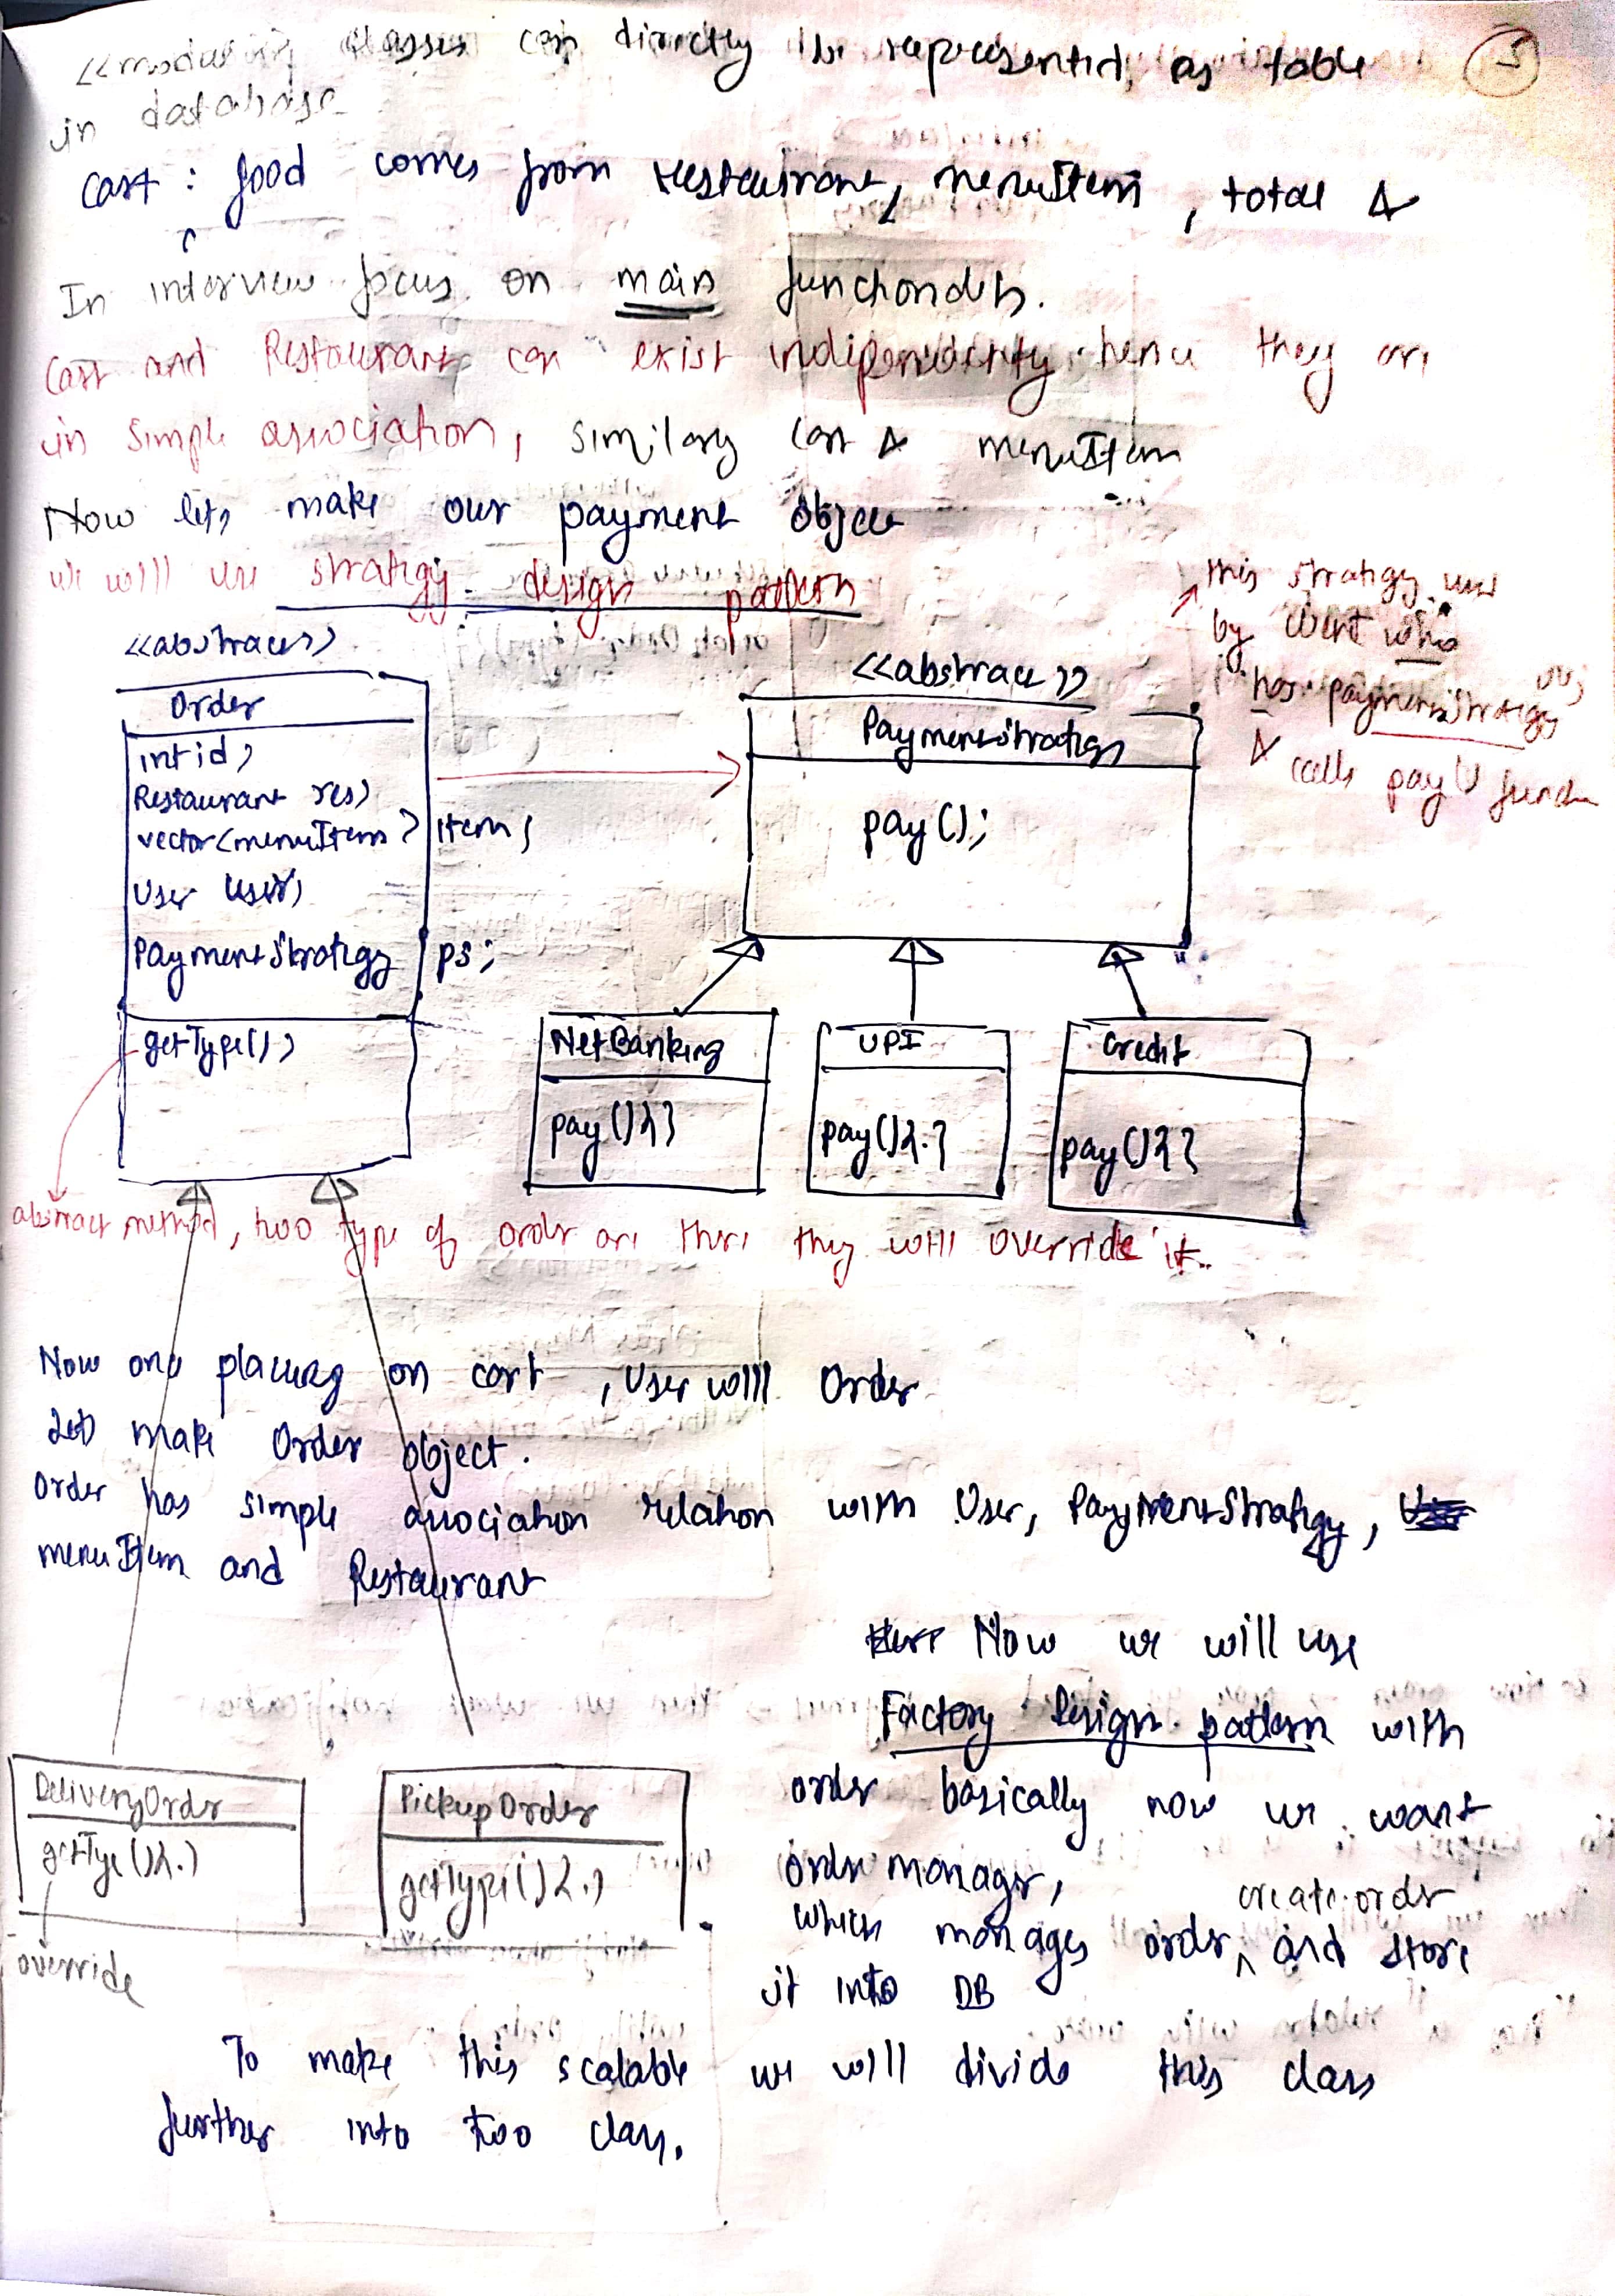 <<model>> classes can directly be represented, as table
in database
5
Cart : food comes from restaurant, menuItem , total &
In interview focus on main
Cart and Restaurant can exist indipendently hence they are
in simple association, similary Cart & menuItem
Now lets make our payment object
we will use strategy design pattern
this strategy used
by client who
has paymentStrategy
& calls pay()
<<abstract>>
Order
int id;
Restaurant res;
vector<menuItem> item;
User user;
PaymentStrategy ps;
getType();
<<abstract>>
PaymentStrategy
pay();
NetBanking
pay(){}
UPI
pay(){.}
Credit
pay(){}
abstract method, two type of order are there they will override it.
Now placing on cart , user will Order
Lets make Order object.
Order has simple association relation with User, PaymentStrategy,
menuItem and Restaurant
Now we will use
Factory Design pattern with
order basically now we want
order manager,
create order
which manages order, and store
it into DB
DeliveryOrder
getTye(){.}
override
PickupOrder
getType(){.}
To make this scalable we will divide this class
further into two class.